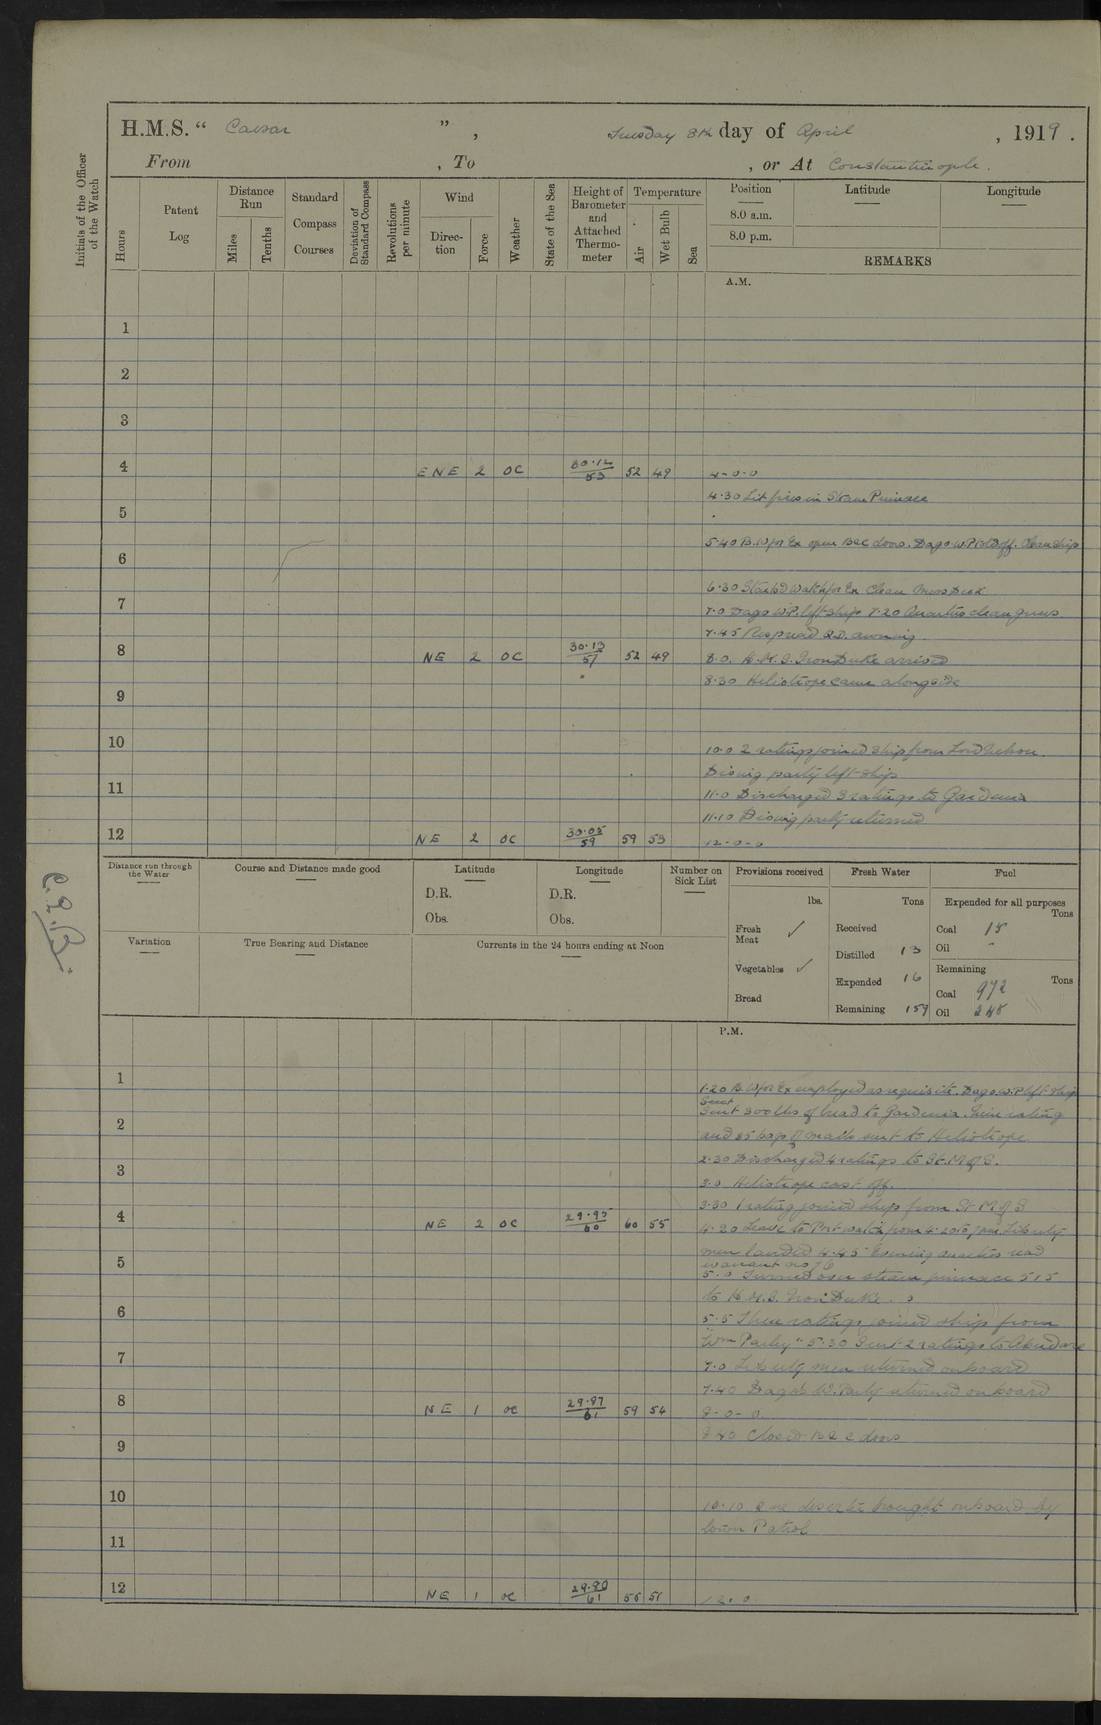 H.M.S. " Caesar ", Tuesday 8th day of April, 1919.
From , To , or At Constantinople.
Initials of the Officer of the Watch
Hours
Patent Log
Distance Run
Miles
Tenths
Standard Compass Courses
Deviation of Standard Compass
Revolutions per minute
Wind
Direction
Force
Weather
State of the Sea
Height of Barometer and Attached Thermometer
Temperature
Air
Wet Bulb
Sea
Position Latitude Longitude
8.0 a.m.
8.0 p.m.
REMARKS
A.M.
1
2
3
4 ENE 2 OC 30.12/53 52 49 4-0-0
4.30 Lit fires in Steam Pinnace
5
5.40 B.W for Ex open B & C doors. Dago W.P. Clean ship
6
6.30 Started Watch for Ex Clean Mess Deck
7
7.0 Dago W.P. left ship 7.20 Quarters clean guns
7.45 Respread Q.D. awning
8 NE 2 OC 30.13/57 52 49 8.0. H.M.S. Iron Duke arrived
8.30 Heliotrope came alongside
9
10
10.0 2 ratings joined ship from Lord Nelson.
Diving party left ship
11
11.0 Discharged 3 ratings to Gardenia
11.10 Diving party returned
12 NE 2 OC 30.05/59 59 53 12-0-0
Distance run through the Water
Course and Distance made good
Latitude
D.R.
Obs.
Longitude
D.R.
Obs.
Number on Sick List
Provisions received
lbs.
Fresh Meat ✓
Vegetables ✓
Bread
Fresh Water
Tons
Received
Distilled 13
Expended 16
Remaining 159
Fuel
Expended for all purposes
Tons
Coal 15
Oil -
Remaining
Tons
Coal 972
Oil 248
Variation
True Bearing and Distance
Currents in the 24 hours ending at Noon
P.M.
1
1.20 B.W for Ex employed as requisite. Dago W.P left ship
2
Sent 300 lbs of bread to Gardenia. rating
and 85 bags of mails sent to Heliotrope
3
2.30 Discharged 4 ratings to St. M & G.
3.0 Heliotrope cast off.
4 NE 2 OC 29.95/60 60 55
3.30 1 rating joined ship from St M & G
4.20 Leave to Port watch from 4.20 to 7pm Liberty
men landed 4.45 Evening quarters read
warrant no 76
5
5.0 Turned over steam pinnace 515
to H.M.S. Iron Duke.
6
5.5 Three ratings joined ship from
"Wm Parley" 5.30 Sent 2 ratings to
7
7.0 Liberty men returned onboard
7.40 Dago W. Party returned onboard
8 NE 1 OC 29.87/61 59 54 8-0-0
Closed B & C doors
9
10
10.10 One deserter brought onboard by
town Patrol
11
12 NE 1 OC 29.80/61 56 51 12.0